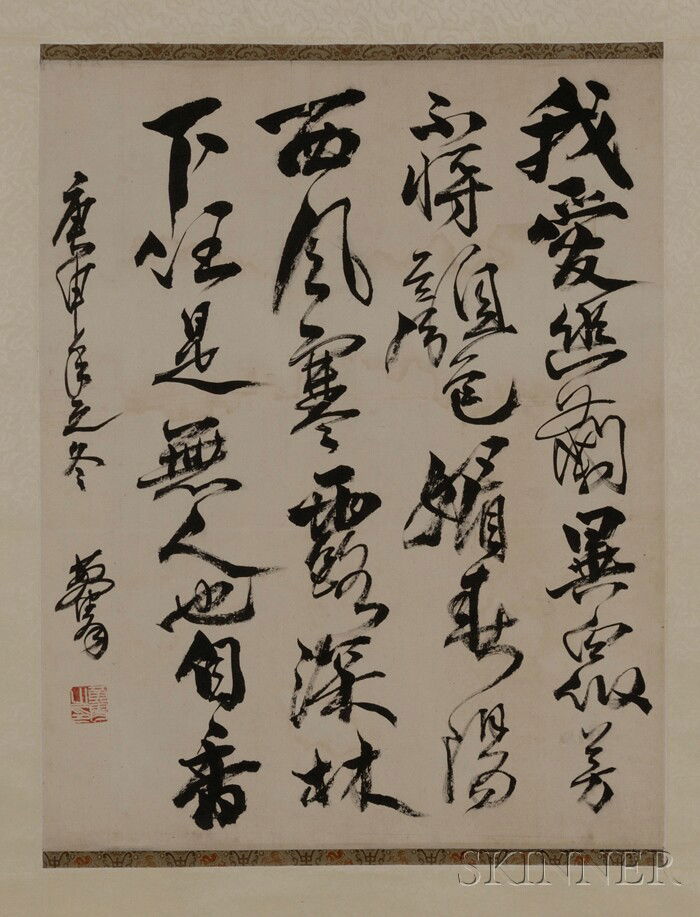 我愛幽蘭異眾芳
不將顏色媚春陽
西風寒露深林
下任是無人也自香
庚申年冬
SKINNER